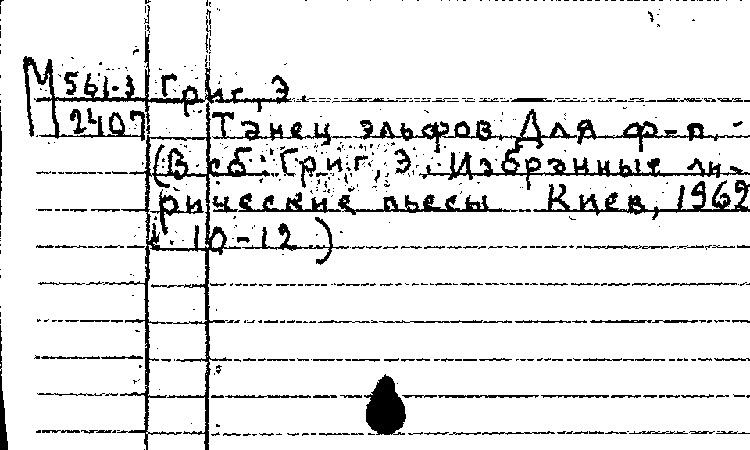 М 561-3 Григ, Э.
2407 Танец эльфов. Для ф-п. -
(В сб: Григ, Э. Избранные ли-
рические пьесы Киев, 1962
с. 10-12.)